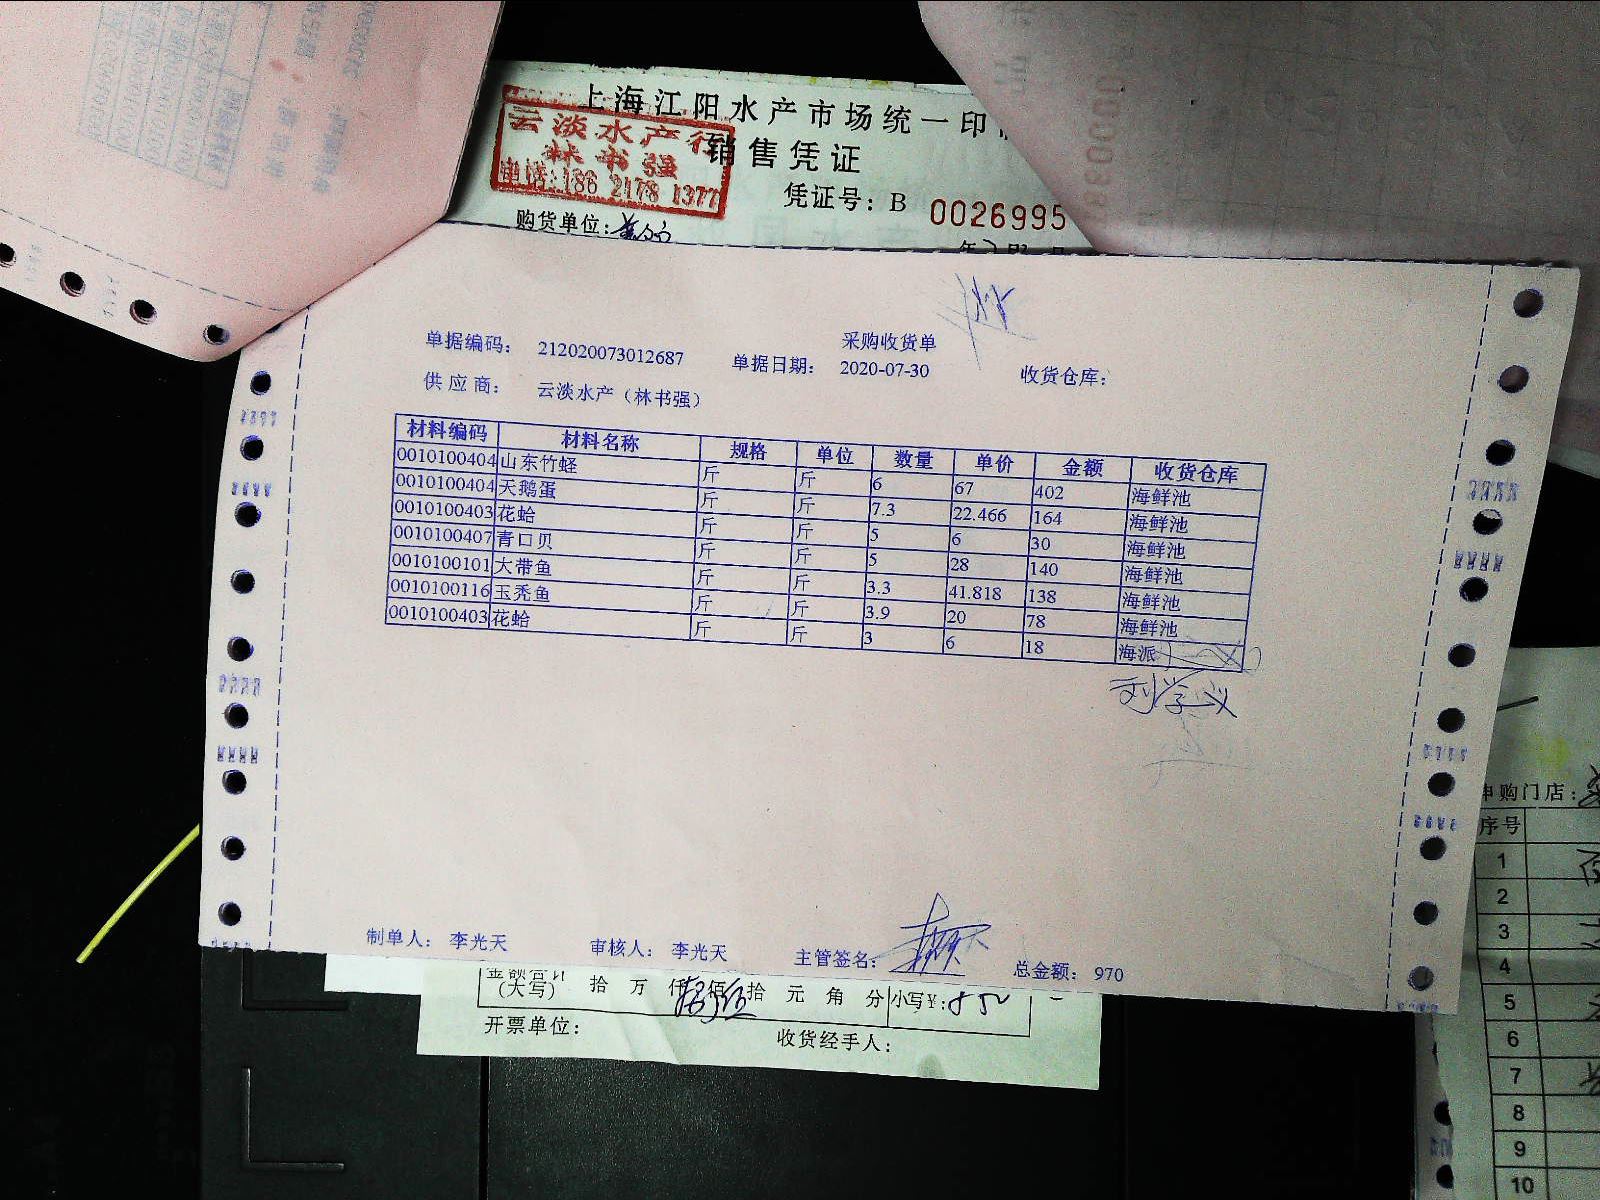 上海江阳水产市场统一印
云淡水产行
林书强
电话:186 2178 1377
销售凭证
凭证号: B 0026995
购货单位:
采购收货单
单据编码: 212020073012687 单据日期: 2020-07-30 收货仓库:
供应商: 云淡水产（林书强）
材料编码 材料名称 规格 单位 数量 单价 金额 收货仓库
0010100404 山东竹蛏 斤 斤 6 67 402 海鲜池
0010100404 天鹅蛋 斤 斤 7.3 22.466 164 海鲜池
0010100403 花蛤 斤 斤 5 6 30 海鲜池
0010100407 青口贝 斤 斤 5 28 140 海鲜池
0010100101 大带鱼 斤 斤 3.3 41.818 138 海鲜池
0010100116 玉秃鱼 斤 斤 3.9 20 78 海鲜池
0010100403 花蛤 斤 斤 3 6 18 海派
刘学义
制单人: 李光天 审核人: 李光天 主管签名: 总金额: 970
金额合计
(大写) 拾 万 仟 佰 拾 元 角 分 小写¥: 850
开票单位: 收货经手人:
申购门店:
序号
1
2
3
4
5
6
7
8
9
10